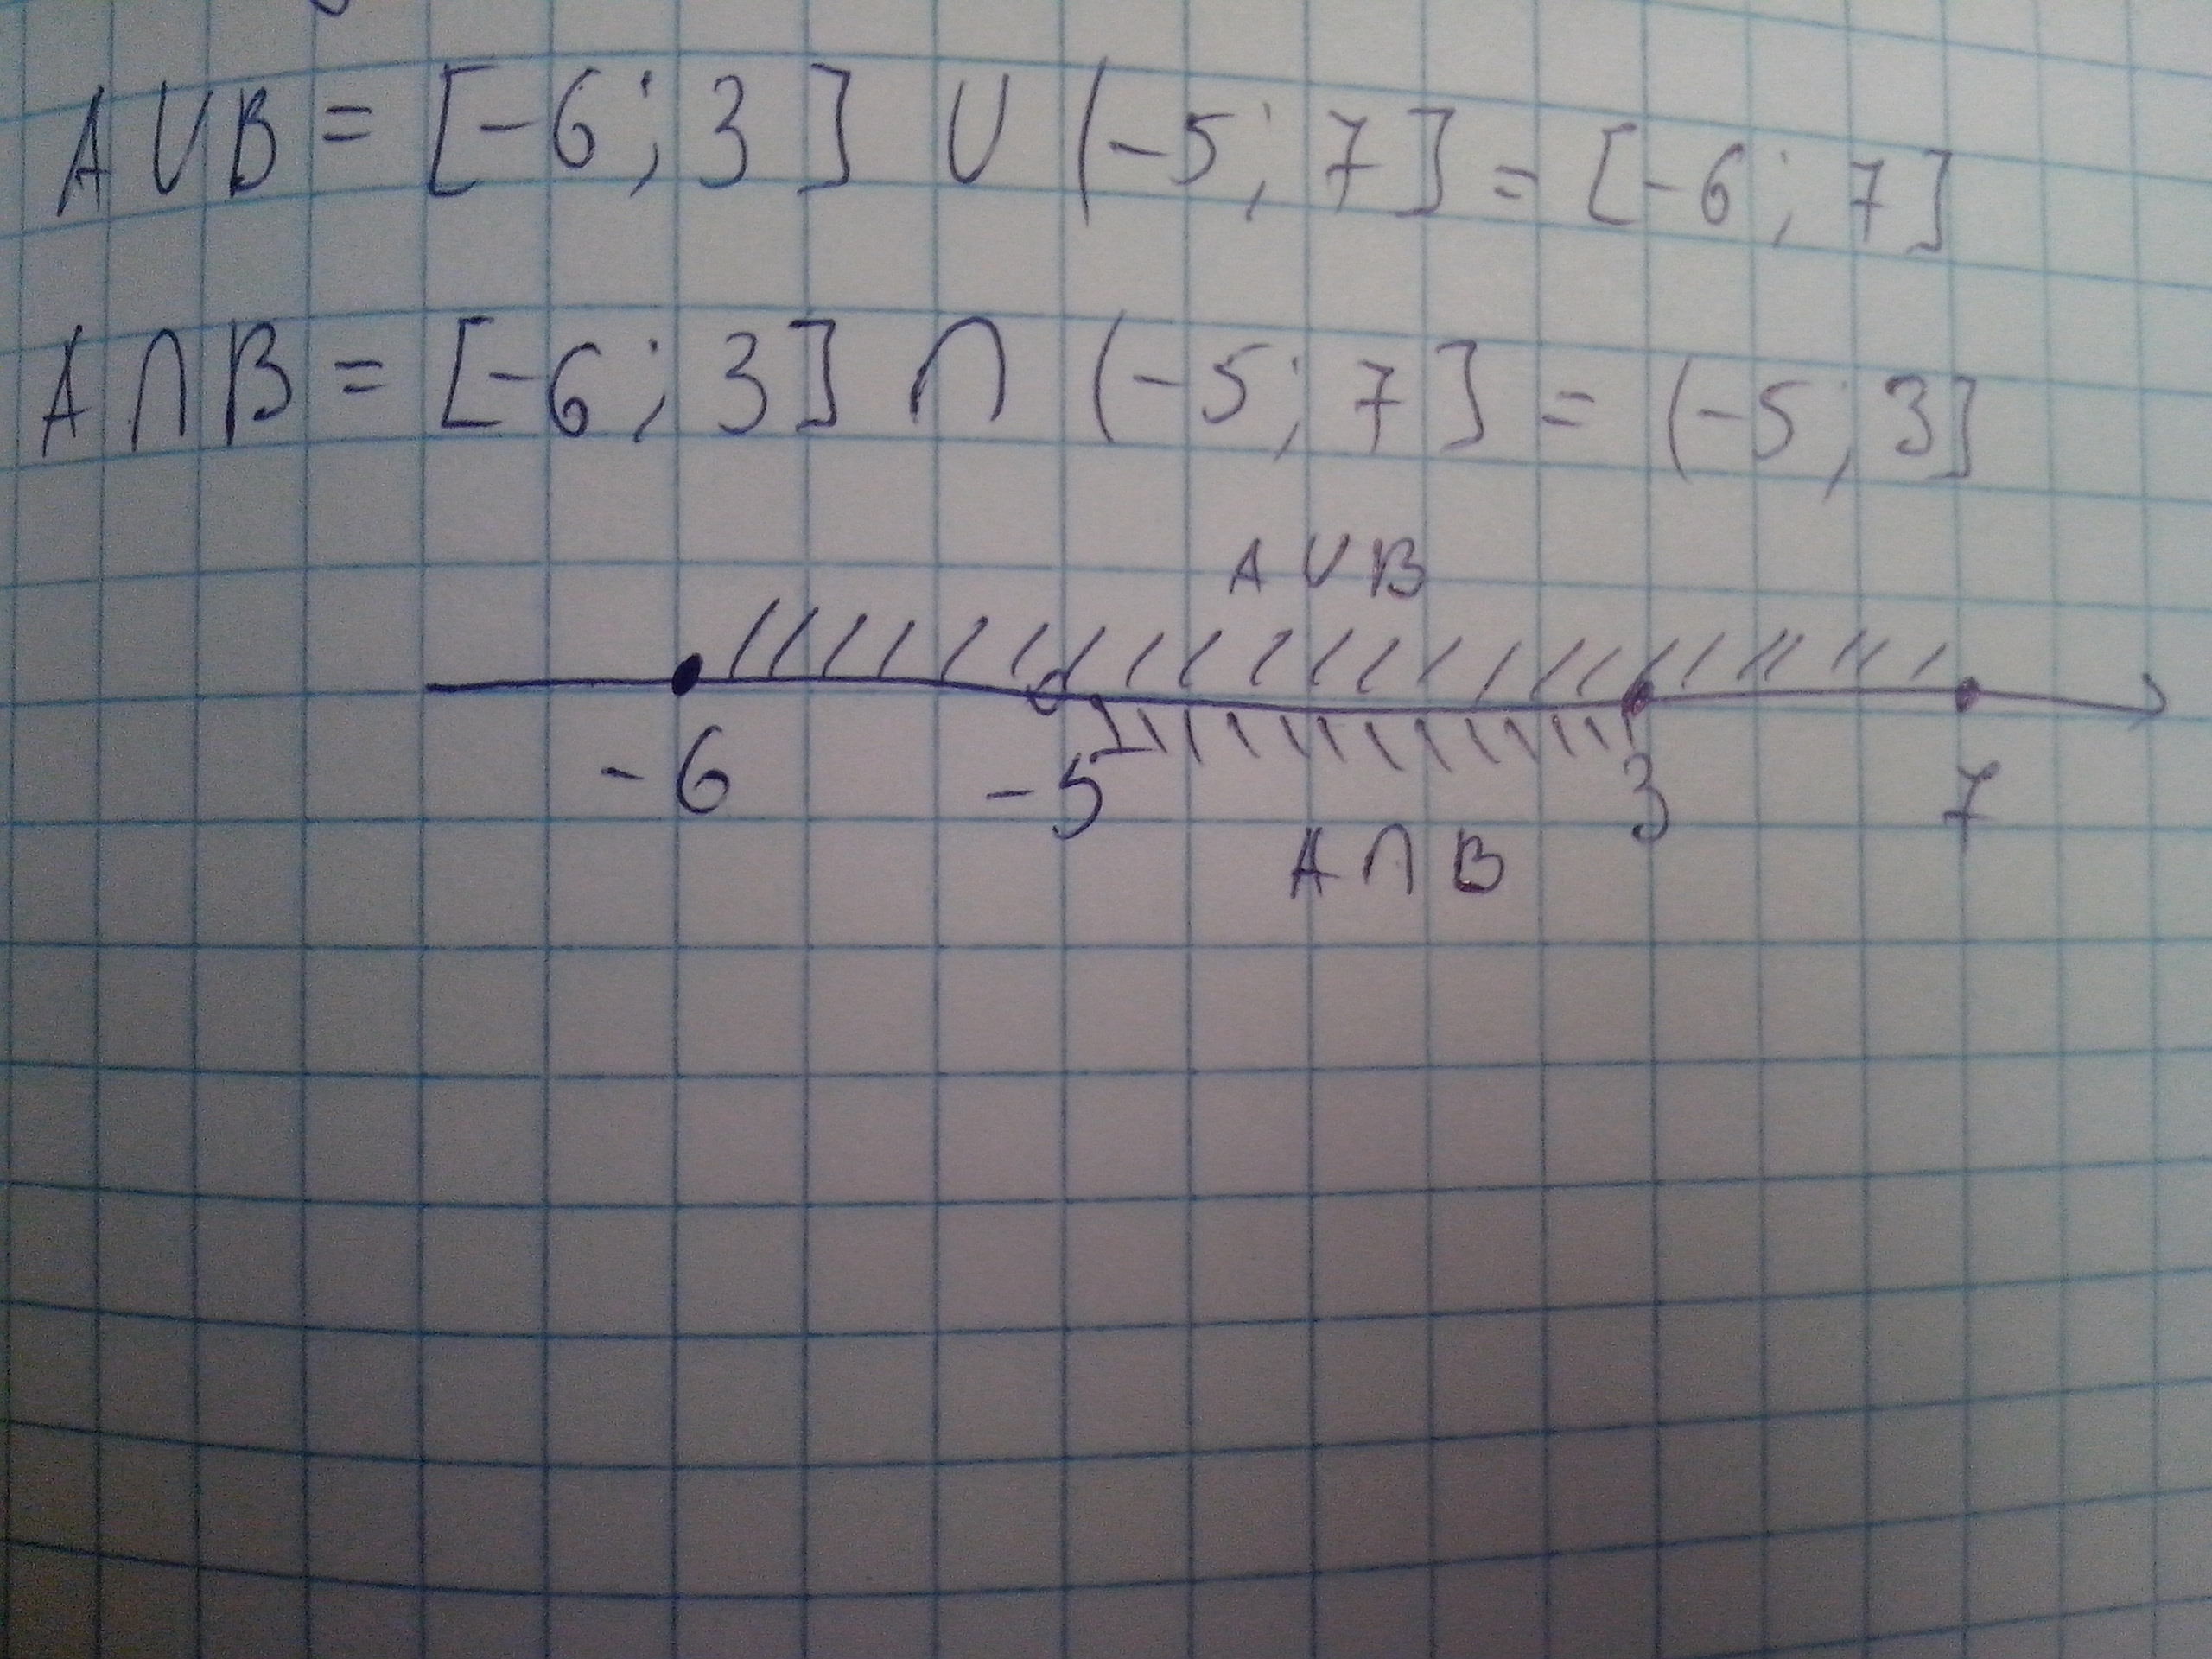 A∪B = [-6; 3] ∪ (-5; 7] = [-6; 7]
A∩B = [-6; 3] ∩ (-5; 7] = (-5; 3]
A∪B
-6 -5 3 7
A∩B